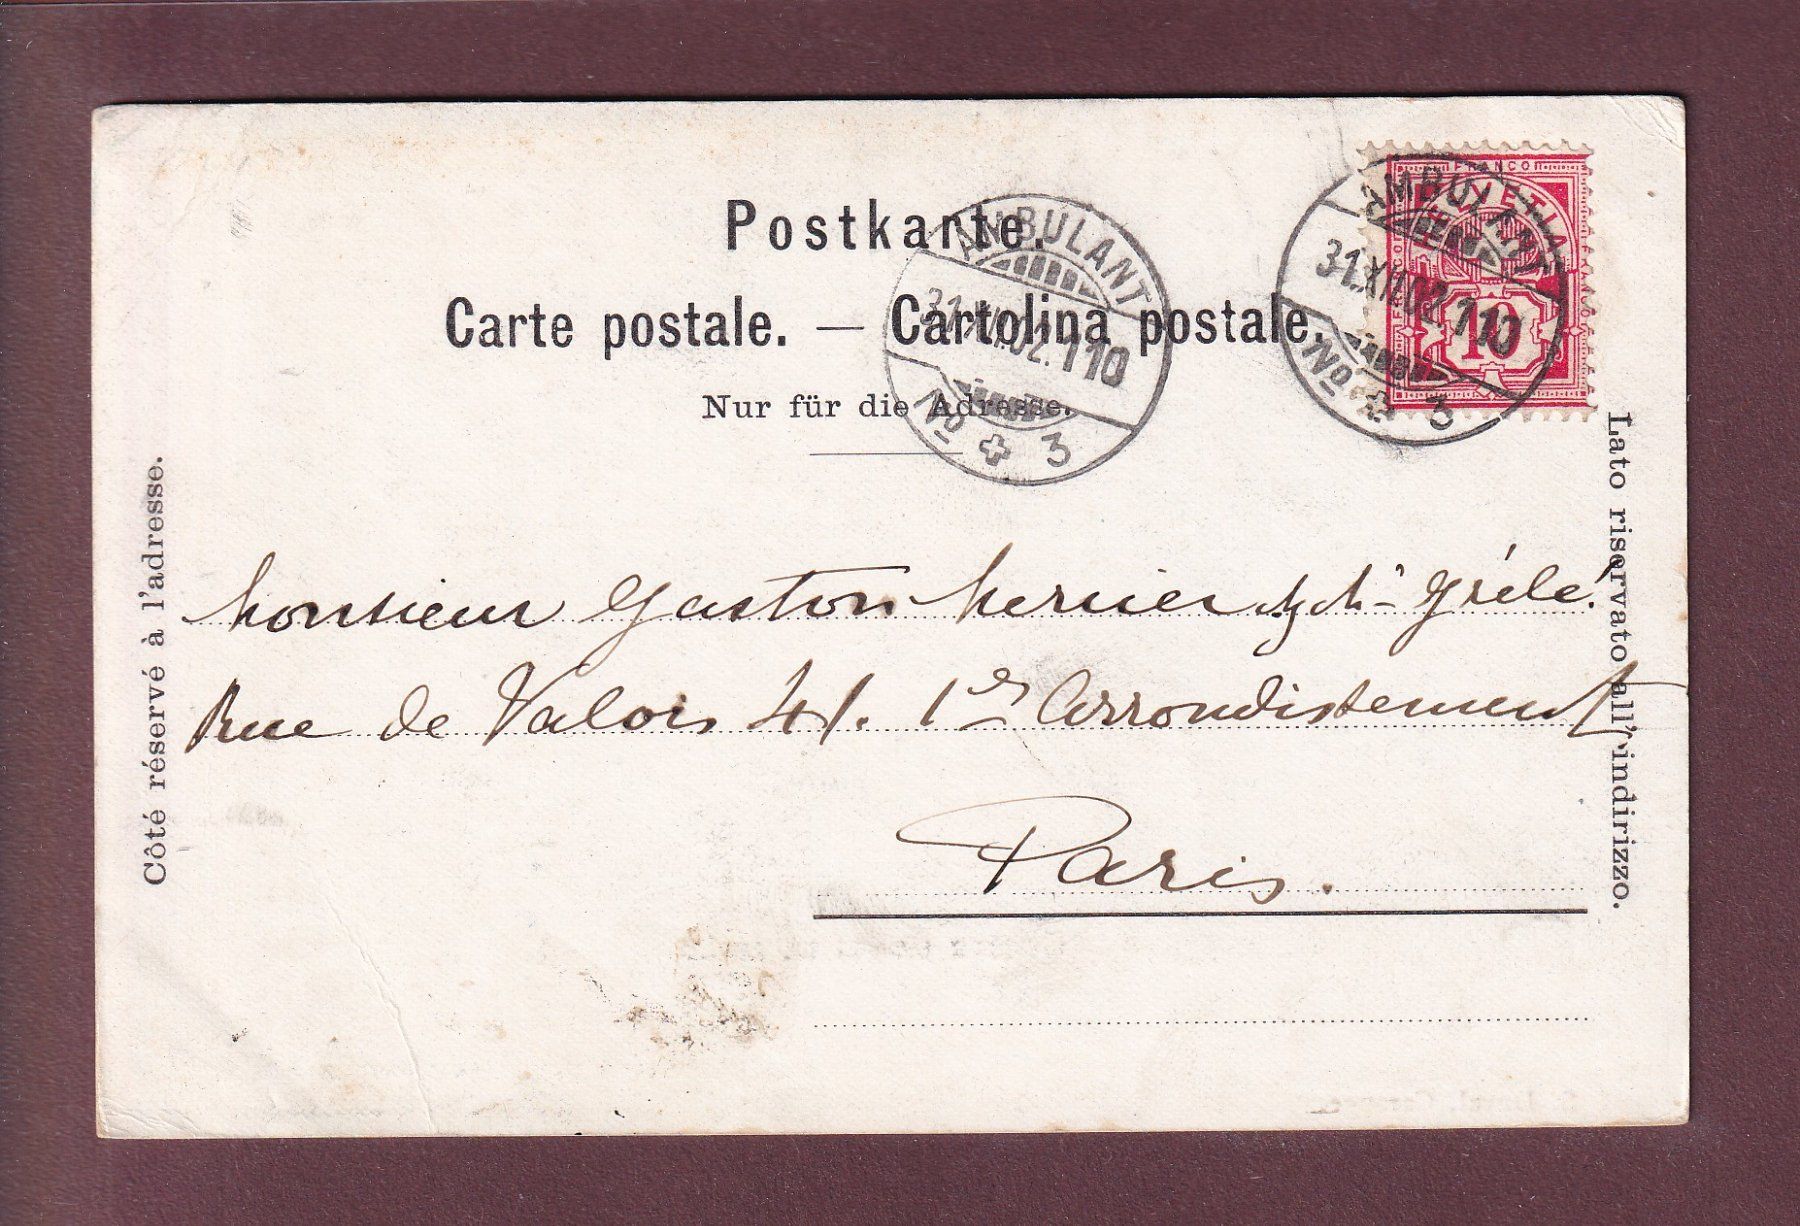 Postkarte.
Carte postale. — Cartolina postale.
Nur für die Adresse.
AMBULANT
31.XII.02.110
No 3
FRANCO
HELVETIA
10
AMBULANT
31.XII.02.110
No 3
Côté réservé à l'adresse.
Lato riservato all' indirizzo.
Monsieur Gaston Mercier Grélé
Rue de Valois 41. 1er Arrondistement
Paris.